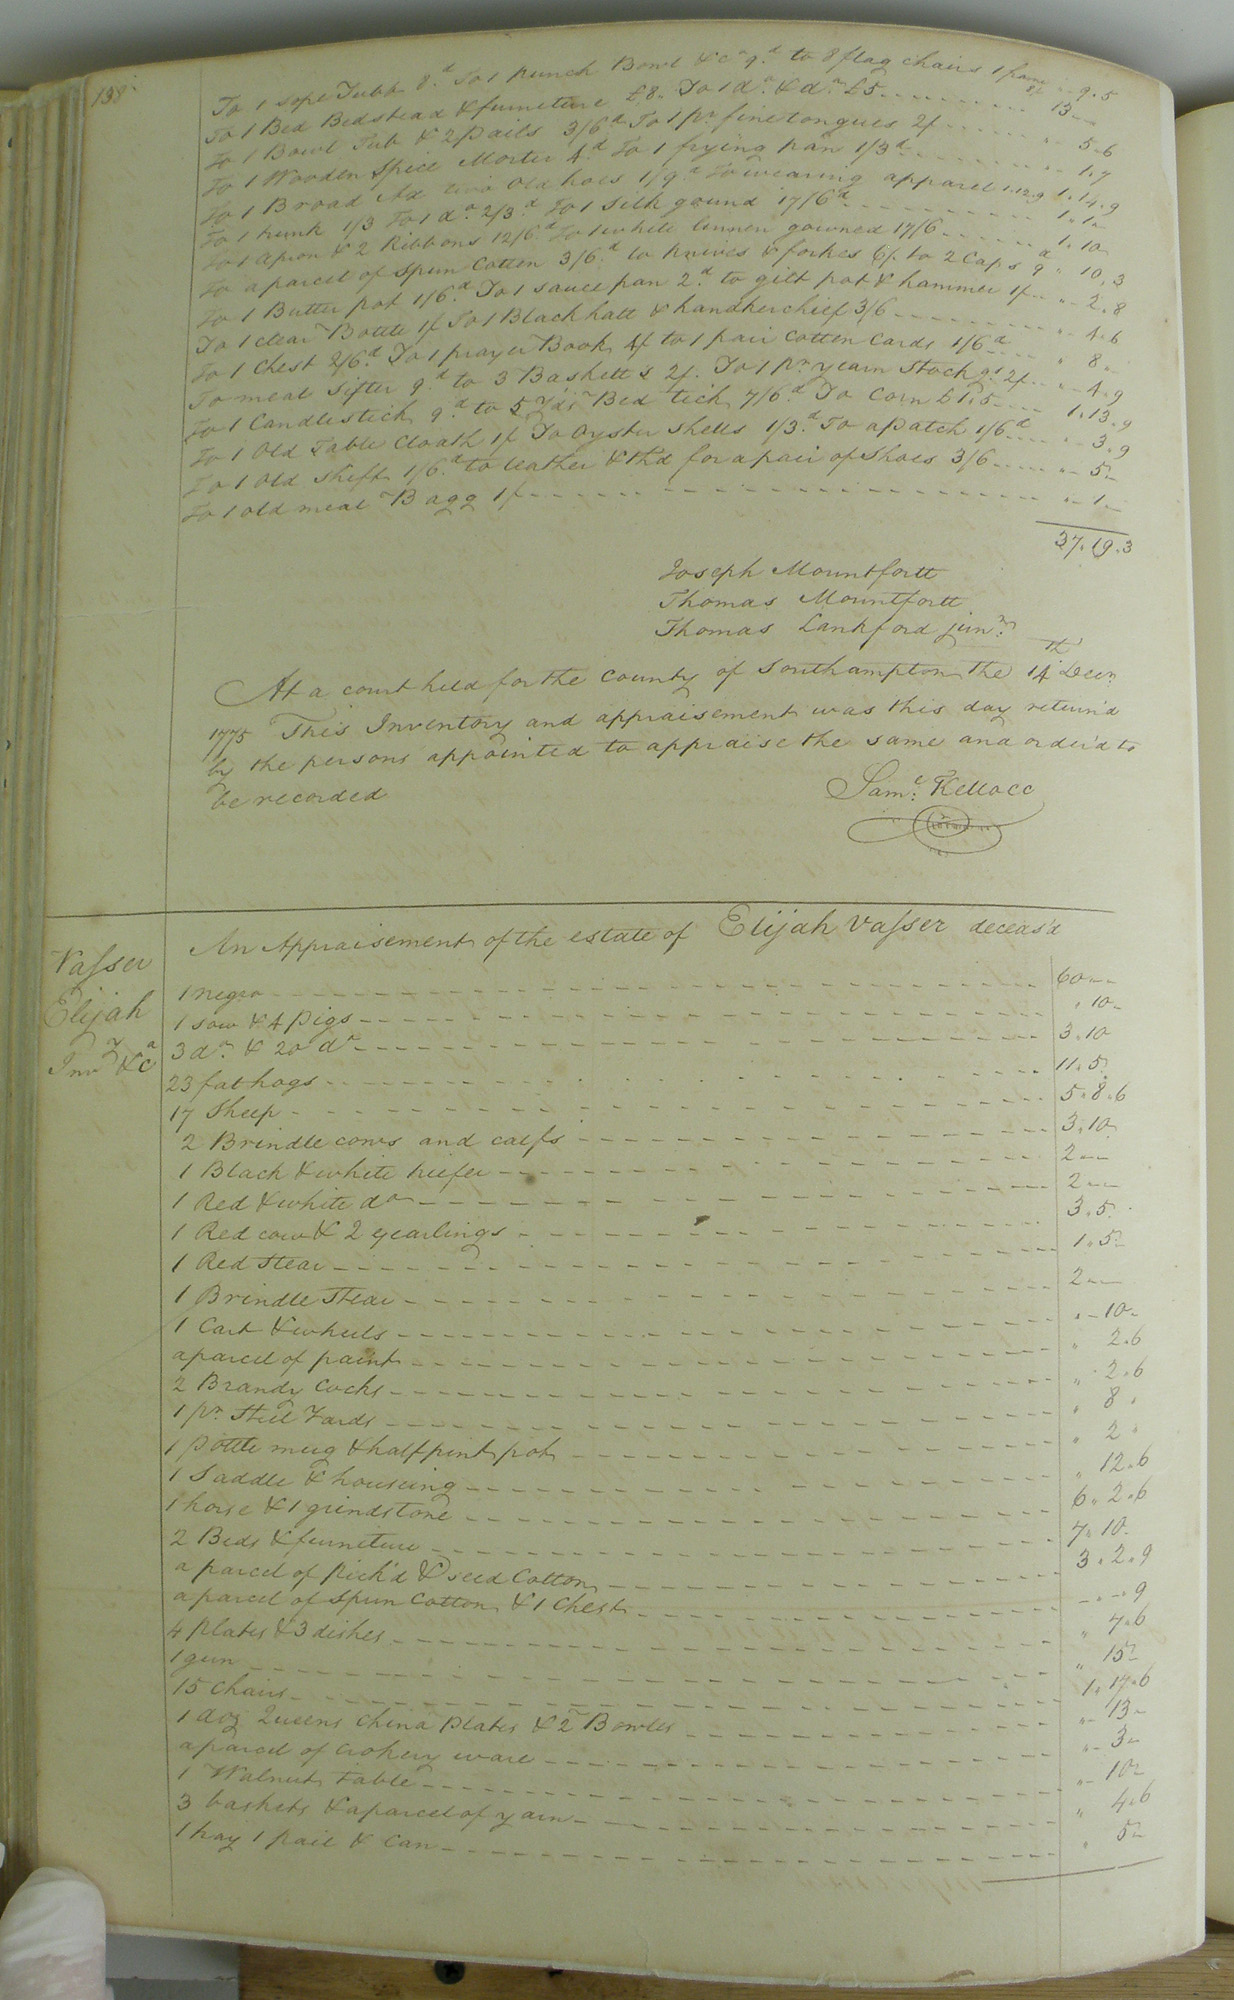 138
To 1 sope Tubb 8.d To 1 punch Bowl &c a 9.d to 8 flag chairs 1 frame 8/ " 9.5
To 1 Bed Bedstead & furneture £8. To 1 do. & do. £5 13 "
To 1 Bowl Tub & 2 pails 3/6d To 1 pr fire tongues 2/ " 5.6
To 1 Wooden Spice Morter 4d To 1 frying pan 1/3d " 1.7
To 1 Broad Ax two old hoes 1/9d To wearing apparel 1.12.9 1.14.9
To 1 trunk 1/3 To 1 do. 2/3.d To 1 silk gound 17/6d 1.1.
To 1 apron & 2 Ribbons 12/6.d To 1 white linnen gowned 17/6 1.10
To a parcel of spun Cotten 3/6.d to knives & forkes 6/. to 2 Caps 9d " 10.3
To 1 Butter pot 1/6.d To 1 sauce pan 2.d to gilt pot & hammer 1/ " 2.8
To 1 clear Bottle 1/ To 1 Black hatt & handkerchief 3/6 " 4.6
To 1 Chest 2/6.d To 1 prayer Book 4/ to 1 pair cotten Cards 1/6d " 8 "
To meal sifter 9.d to 3 Basketts 2/. To 1 pr yearn Stockgs 2/ " 4.9
To 1 Candlestick 9.d to 5 Yds Bed tick 7/6.d To Corn £1.5 1.13.9
To 1 Old Table Cloath 1/ To Oyster shells 1/3.d To a patch 1/6d " 3.9
To 1 Old shift 1/6.d to leather & thd for a pair of shoes 3/6 " 5.
To 1 old meal Bagg 1/ " 1.
37.19.3
Joseph Mountfortt
Thomas Mountfortt
Thomas Lankford junr.
At a court held for the county of Southampton the 14th Decr.
1775 This Inventory and appraisement was this day return'd
by the persons appointed to appraise the same and order'd to
be recorded
Saml: Kello CC
Vasser
Elijah
Invy &ca
An Appraisement of the estate of Elijah Vasser deceas'd
1 negro 60 "
1 sow & 4 pigs " 10 "
3 do. & 20 do 3.10
23 fat hogs 11.5
17 Sheep 5.8.6
2 Brindle cows and calfs 3.10
1 Black & white heifer 2 "
1 Red & white do 2 "
1 Red cow & 2 yearlings 3.5
1 Red Stear 1.5
1 Brindle Stear 2 "
1 Cart & wheels " 10 "
a parcel of paint " 2.6
2 Brandy Cocks " 2.6
1 pr. Still Yards " 8 "
1 Pottle mug & half pint pot " 2 "
1 Saddle & houseing " 12.6
1 horse & 1 grindstone 6.2.6
2 Beds & furneture 7.10
a parcel of Pick'd & seed Cotton 3.2.9
a parcel of Spun Cotton & 1 Chest " " 9
4 plates & 3 dishes " 7.6
1 gun " 15
15 chairs 1.17.6
1 doz Queens china plates & 2 Bowles " 13
a parcel of crokery ware " 3
1 Walnut table " 10
3 baskets & a parcel of yarn " 4.6
1 tray 1 pail & Can " 5